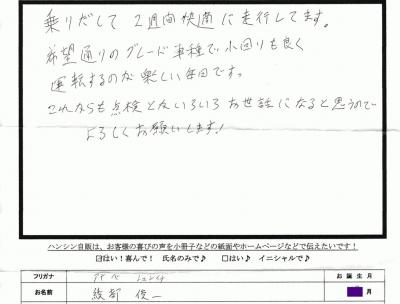 乗りだして2週間快適に走行してます。
希望通りのグレード車種で小回りも良く
運転するのが楽しい毎日です。
これからも点検とかいろいろお世話になると思うので
よろしくお願いします!
ハンシン自販は、お客様の喜びの声を小冊子などの紙面やホームページなどで伝えたいです!
☑はい!喜んで! 氏名のみで♪ □はい♪ イニシャルで♪
フリガナ お誕生月
お名前 綾部 俊一 月